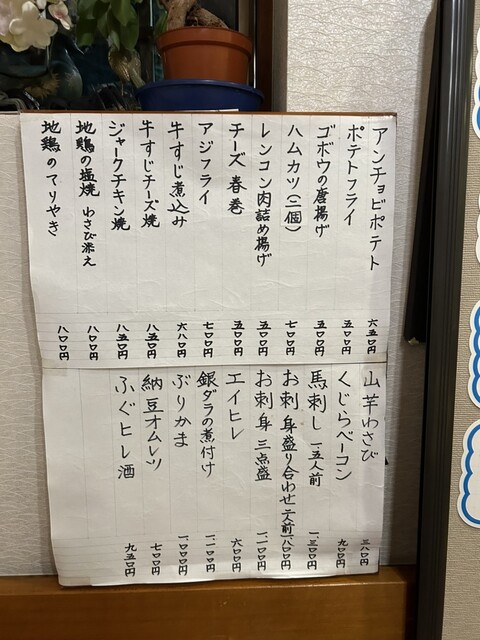 アンチョビポテト 六五〇円
ポテトフライ 五〇〇円
ゴボウの唐揚げ 五〇〇円
ハムカツ(二個) 七〇〇円
レンコン肉詰め揚げ 五〇〇円
チーズ春巻 五〇〇円
アジフライ 七〇〇円
牛すじ煮込み 六八〇円
牛すじチーズ焼 八五〇円
ジャークチキン焼 八五〇円
地鶏の塩焼 わさび添え 八〇〇円
地鶏のてりやき 八〇〇円
山芋わさび 三八〇円
くじらベーコン 九〇〇円
馬刺し 一.五人前 一.三〇〇円
お刺身盛り合わせ 二人前 一.八〇〇円
お刺身三点盛 一.二〇〇円
エイヒレ 六〇〇円
銀ダラの煮付け 一.二〇〇円
ぶりかま 一.〇〇〇円
納豆オムレツ 七〇〇円
ふぐヒレ酒 九五〇円